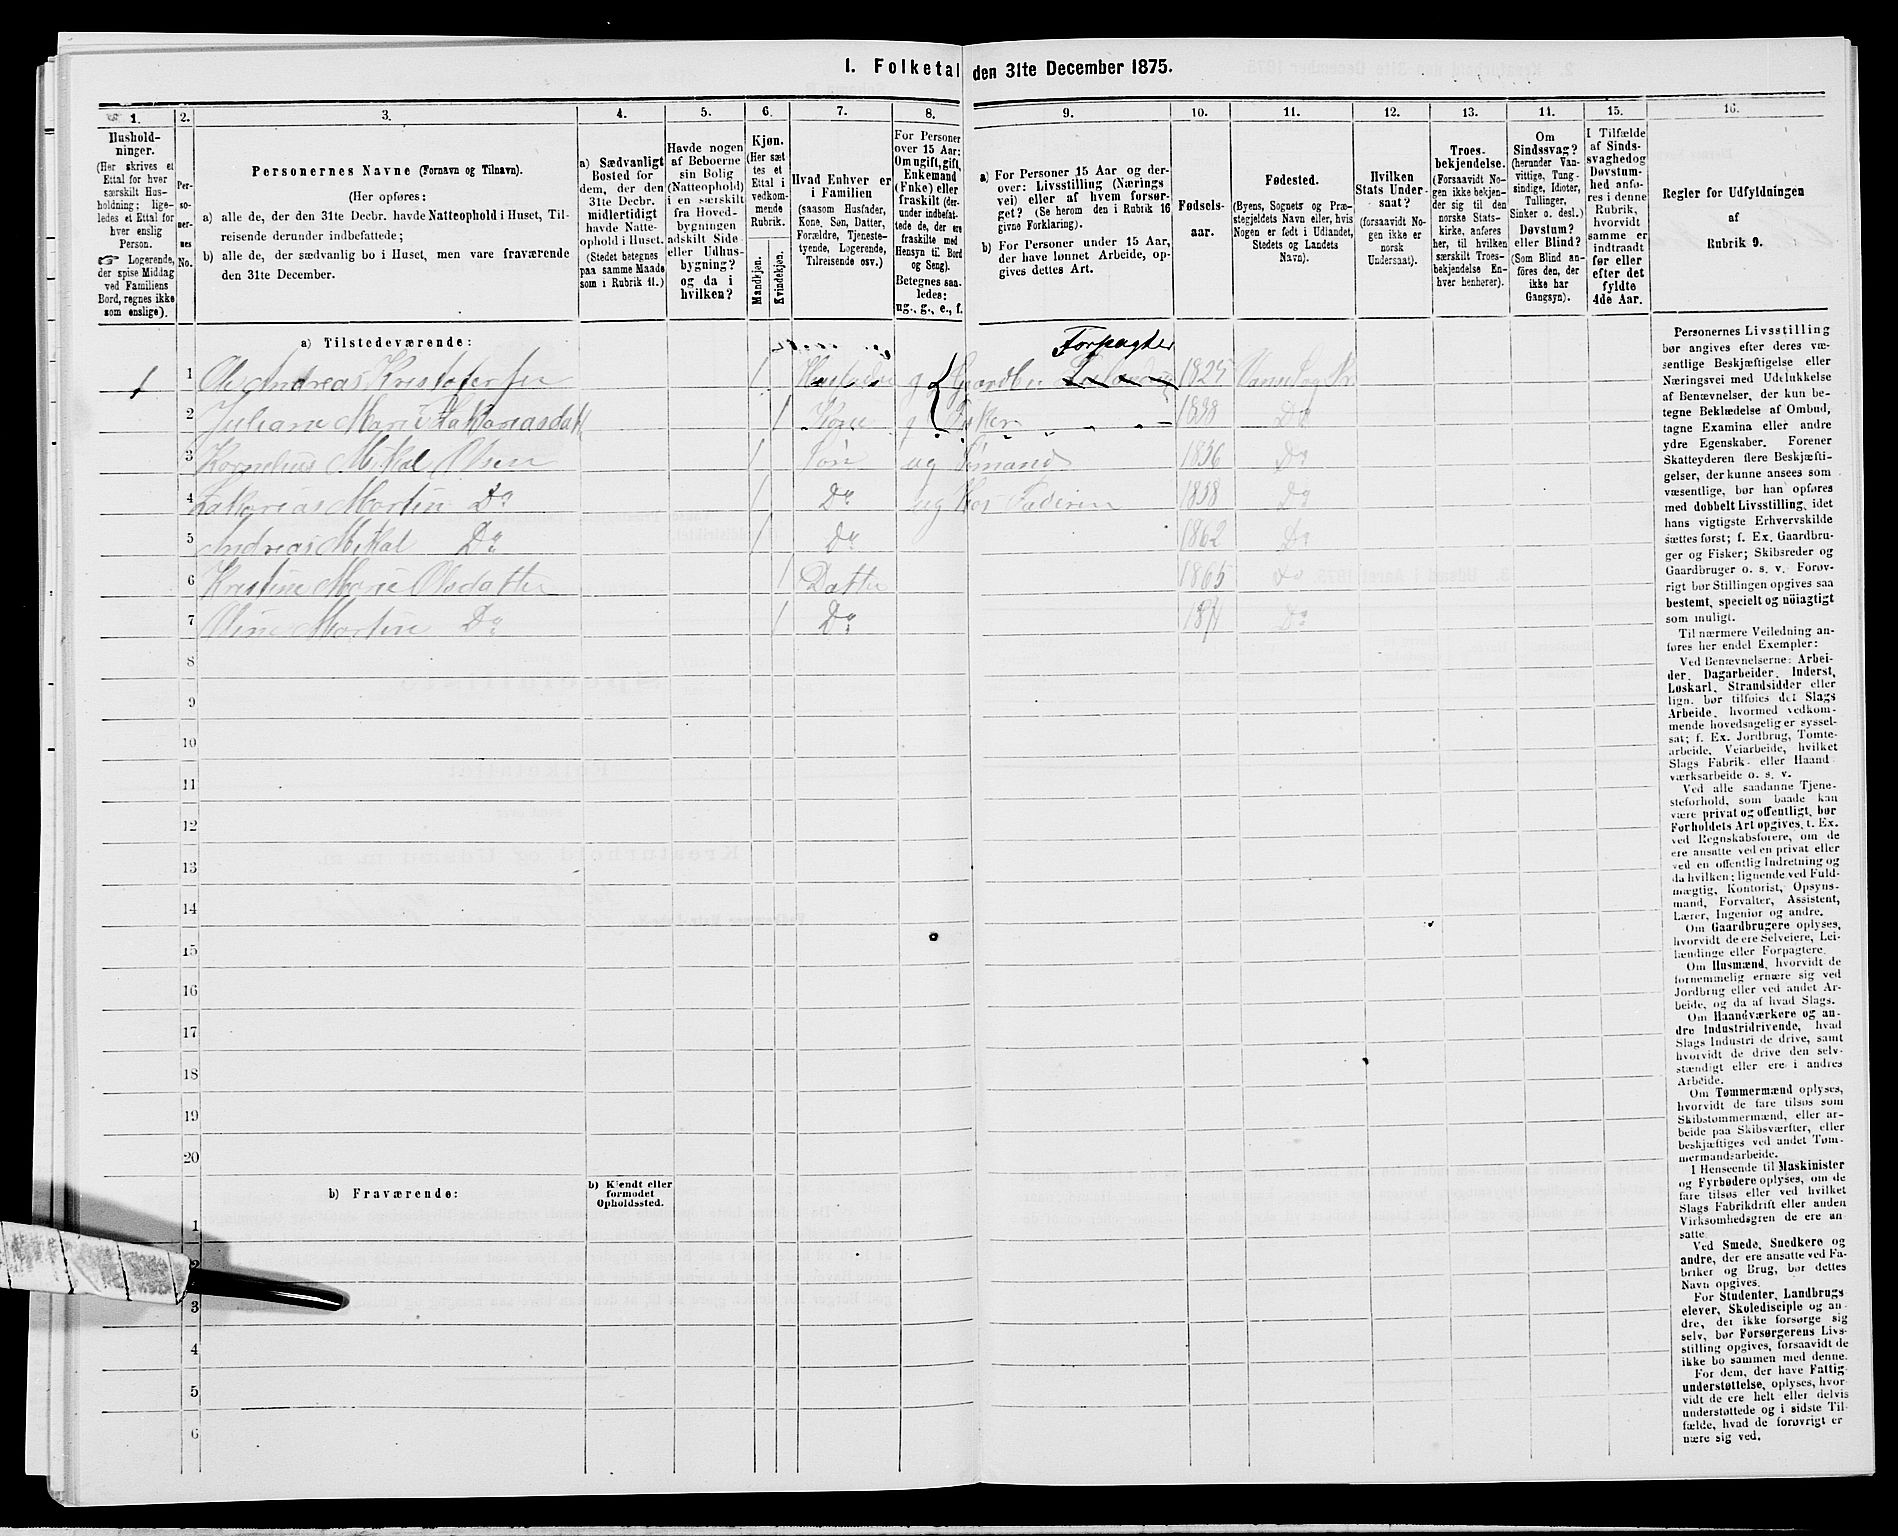 I. Folketal den 31te December 1875.
1.
Hushold-
ninger.
(Her skrives et
Ettal for hver
særskilt Hus-
holdning; lige-
ledes et Ettal for
hver enslig
Person.
☞ Logerende,
der spise Middag
ved Familiens
Bord, regnes ikke
som enslige).
2.
Per-
so-
ner-
nes
No.
3.
Personernes Navne (Fornavn og Tilnavn).
(Her opføres:
a) alle de, der den 31te Decbr. havde Natteophold i Huset, Til-
reisende derunder indbefattede;
b) alle de, der sædvanlig bo i Huset, men vare fraværende
den 31te December.
4.
a) Sædvanligt
Bosted for
dem, der den
31te Decbr.
midlertidigt
havde Natte-
ophold i Huset.
(Stedet betegnes
paa samme Maade
som i Rubrik 11.)
5.
Havde nogen
af Beboerne
sin Bolig
(Natteophold)
i en særskilt
fra Hoved-
bygningen
adskilt Side-
eller Udhus-
bygning?
og da i
hvilken?
6.
Kjøn.
(Her sæt-
tes et
Ettal i
vedkom-
mende
Rubrik.
Mandkjøn.
Kvindekjøn.
7.
Hvad Enhver er
i Familien
(saasom Husfader,
Kone, Søn, Datter,
Forældre, Tjeneste-
tyende, Logerende,
Tilreisende osv.)
8.
For Personer
over 15 Aar:
Om ugift, gift,
Enkemand
(Enke) eller
fraskilt (der-
under indbefat-
tede de, der ere
fraskilte med
Hensyn til Bord
og Seng).
Betegnes saa-
ledes:
ug., g., e., f.
9.
a) For Personer 15 Aar og der-
over: Livsstilling (Nærings
vei) eller af hvem forsør-
get? (Se herom den i Rubrik 16
givne Forklaring).
b) For Personer under 15 Aar,
der have lønnet Arbeide, op-
gives dettes Art.
10.
Fødsels-
aar.
11.
Fødested.
(Byens, Sognets og Præ-
stegjeldets Navn eller, hvis
Nogen er født i Udlandet,
Stedets og Landets
Navn).
12.
Hvilken
Stats Under-
saat?
(forsaavidt No-
gen ikke er
norsk
Undersaat).
13.
Troes-
bekjendelse.
(Forsaavidt No-
gen ikke bekjen-
der sig til den
norske Stats-
kirke, anføres
her, til hvilken
særskilt Troes-
bekjendelse En-
hver henhører).
14.
Om
Sindssvag?
(herunder Van-
vittige, Tung-
sindige, Idioter,
Tullinger,
Sinker o. desl.)
Døvstum?
eller Blind?
(Som Blind an-
føres den, der
ikke har
Gangsyn).
15.
I Tilfælde
af Sinds-
svaghed og
Døvstum-
hed anfø-
res i denne
Rubrik,
hvorvidt
samme er
indtraadt
før eller
efter det
fyldte
4de Aar.
16.
Regler for Udfyldningen
af
Rubrik 9.
a) Tilstedeværende:
Forpagter
1 1 Ole Andreas Kristofersen 1 Husfader g Gaardbr 1825
2 Juliane Marie Zakariasdatt 1 Kone g Fisker 1838 Do
3 Kornelius Mikal Olsen 1 Søn ug Sømand 1856 Do
4 Zakarias Martin Do 1 Do ug Hos Faderen 1858 Do
5 Andreas Mikal Do 1 Do 1862 Do
6 Kristine Marie Olsdatter 1 Datter 1865 Do
7 Oline Martine Do 1 Do Do
8
9
10
11
12
13
14
15
16
17
18
19
20
b) Fraværende:
b) Kjendt eller
formodet
Opholdssted.
1
2
3
4
5
6
Personernes Livsstilling
bør angives efter deres væ-
sentlige Beskjæftigelse eller
Næringsvei med Udelukkelse
af Benævnelser, der kun be-
tegne Beklædelse af Ombud,
tagne Examina eller andre
ydre Egenskaber. Forener
Skatteyderen flere Beskjæfti-
gelser, der kunne ansees som
væsentlige, bør han opføres
med dobbelt Livsstilling, idet
hans vigtigste Erhvervskilde
sættes først; f. Ex. Gaardbru-
ger og Fisker; Skibsreder og
Gaardbruger o. s. v. Forøv-
rigt bør Stillingen opgives saa
bestemt, specielt og nöiagtigt
som muligt.
Til nærmere Veiledning an-
føres her endel Exempler:
Ved Benævnelserne: Arbei-
der, Dagarbeider, Inderst,
Løskarl, Strandsidder eller
lign. bør tilføies det Slags
Arbeide, hvormed vedkom-
mende hovedsagelig er syssel-
sat; f. Ex. Jordbrug, Tomte-
arbeide, Veiarbeide, hvilket
Slags Fabrik- eller Haand-
værksarbeide o. s. v.
Ved alle saadanne Tjene-
steforhold, som baade kan
være privat og offentligt, bør
Forholdets Art opgives, t. Ex.
ved Regnskabsførere, om de
ere ansatte ved en privat eller
ved en offentlig Indretning og
da hvilken; lignende ved Fuld-
mægtig, Kontorist, Opsyns-
mand, Forvalter, Assistent,
Lærer, Ingeniør og andre.
Om Gaardbrugere oplyses,
hvorvidt de ere Selveiere, Lei-
lændinge eller Forpagtere.
Om Husmænd, hvorvidt de
fornemmelig ernære sig ved
Jordbrug eller ved andet Ar-
beide, og da af hvad Slags.
Om Haandværkere og an-
dre Industridrivende, hvad
Slags Industri de drive, samt
hvorvidt de drive den selv-
stændigt eller ere i andres
Arbeide.
Om Tømmermænd oplyses,
hvorvidt de fare tilsøs som
Skibstømmermænd, eller ar-
beide paa Skibsværfter, eller
beskjæftiges ved andet Tøm-
mermandsarbeide.
I Henseende til Maskinister
og Fyrbødere oplyses, om de
fare tilsøs eller ved hvilket
Slags Fabrikdrift eller anden
Virksomhedsgren de ere an-
satte.
Ved Smede, Snedkere og
andre, der ere ansatte ved Fa-
briker og Brug, bør dettes
Navn opgives.
For Studenter, Landbrugs-
elever, Skoledisciple og an-
dre, der ikke forsørge sig
selv, bør Forsørgerens Livs-
stilling opgives, forsaavidt de
ikke bo sammen med denne.
For dem, der have Fattig-
understøttelse, oplyses, hvor-
vidt de ere helt eller delvis
understøttede og i sidste Til-
fælde, hvad de forøvrigt er-
nære sig ved.